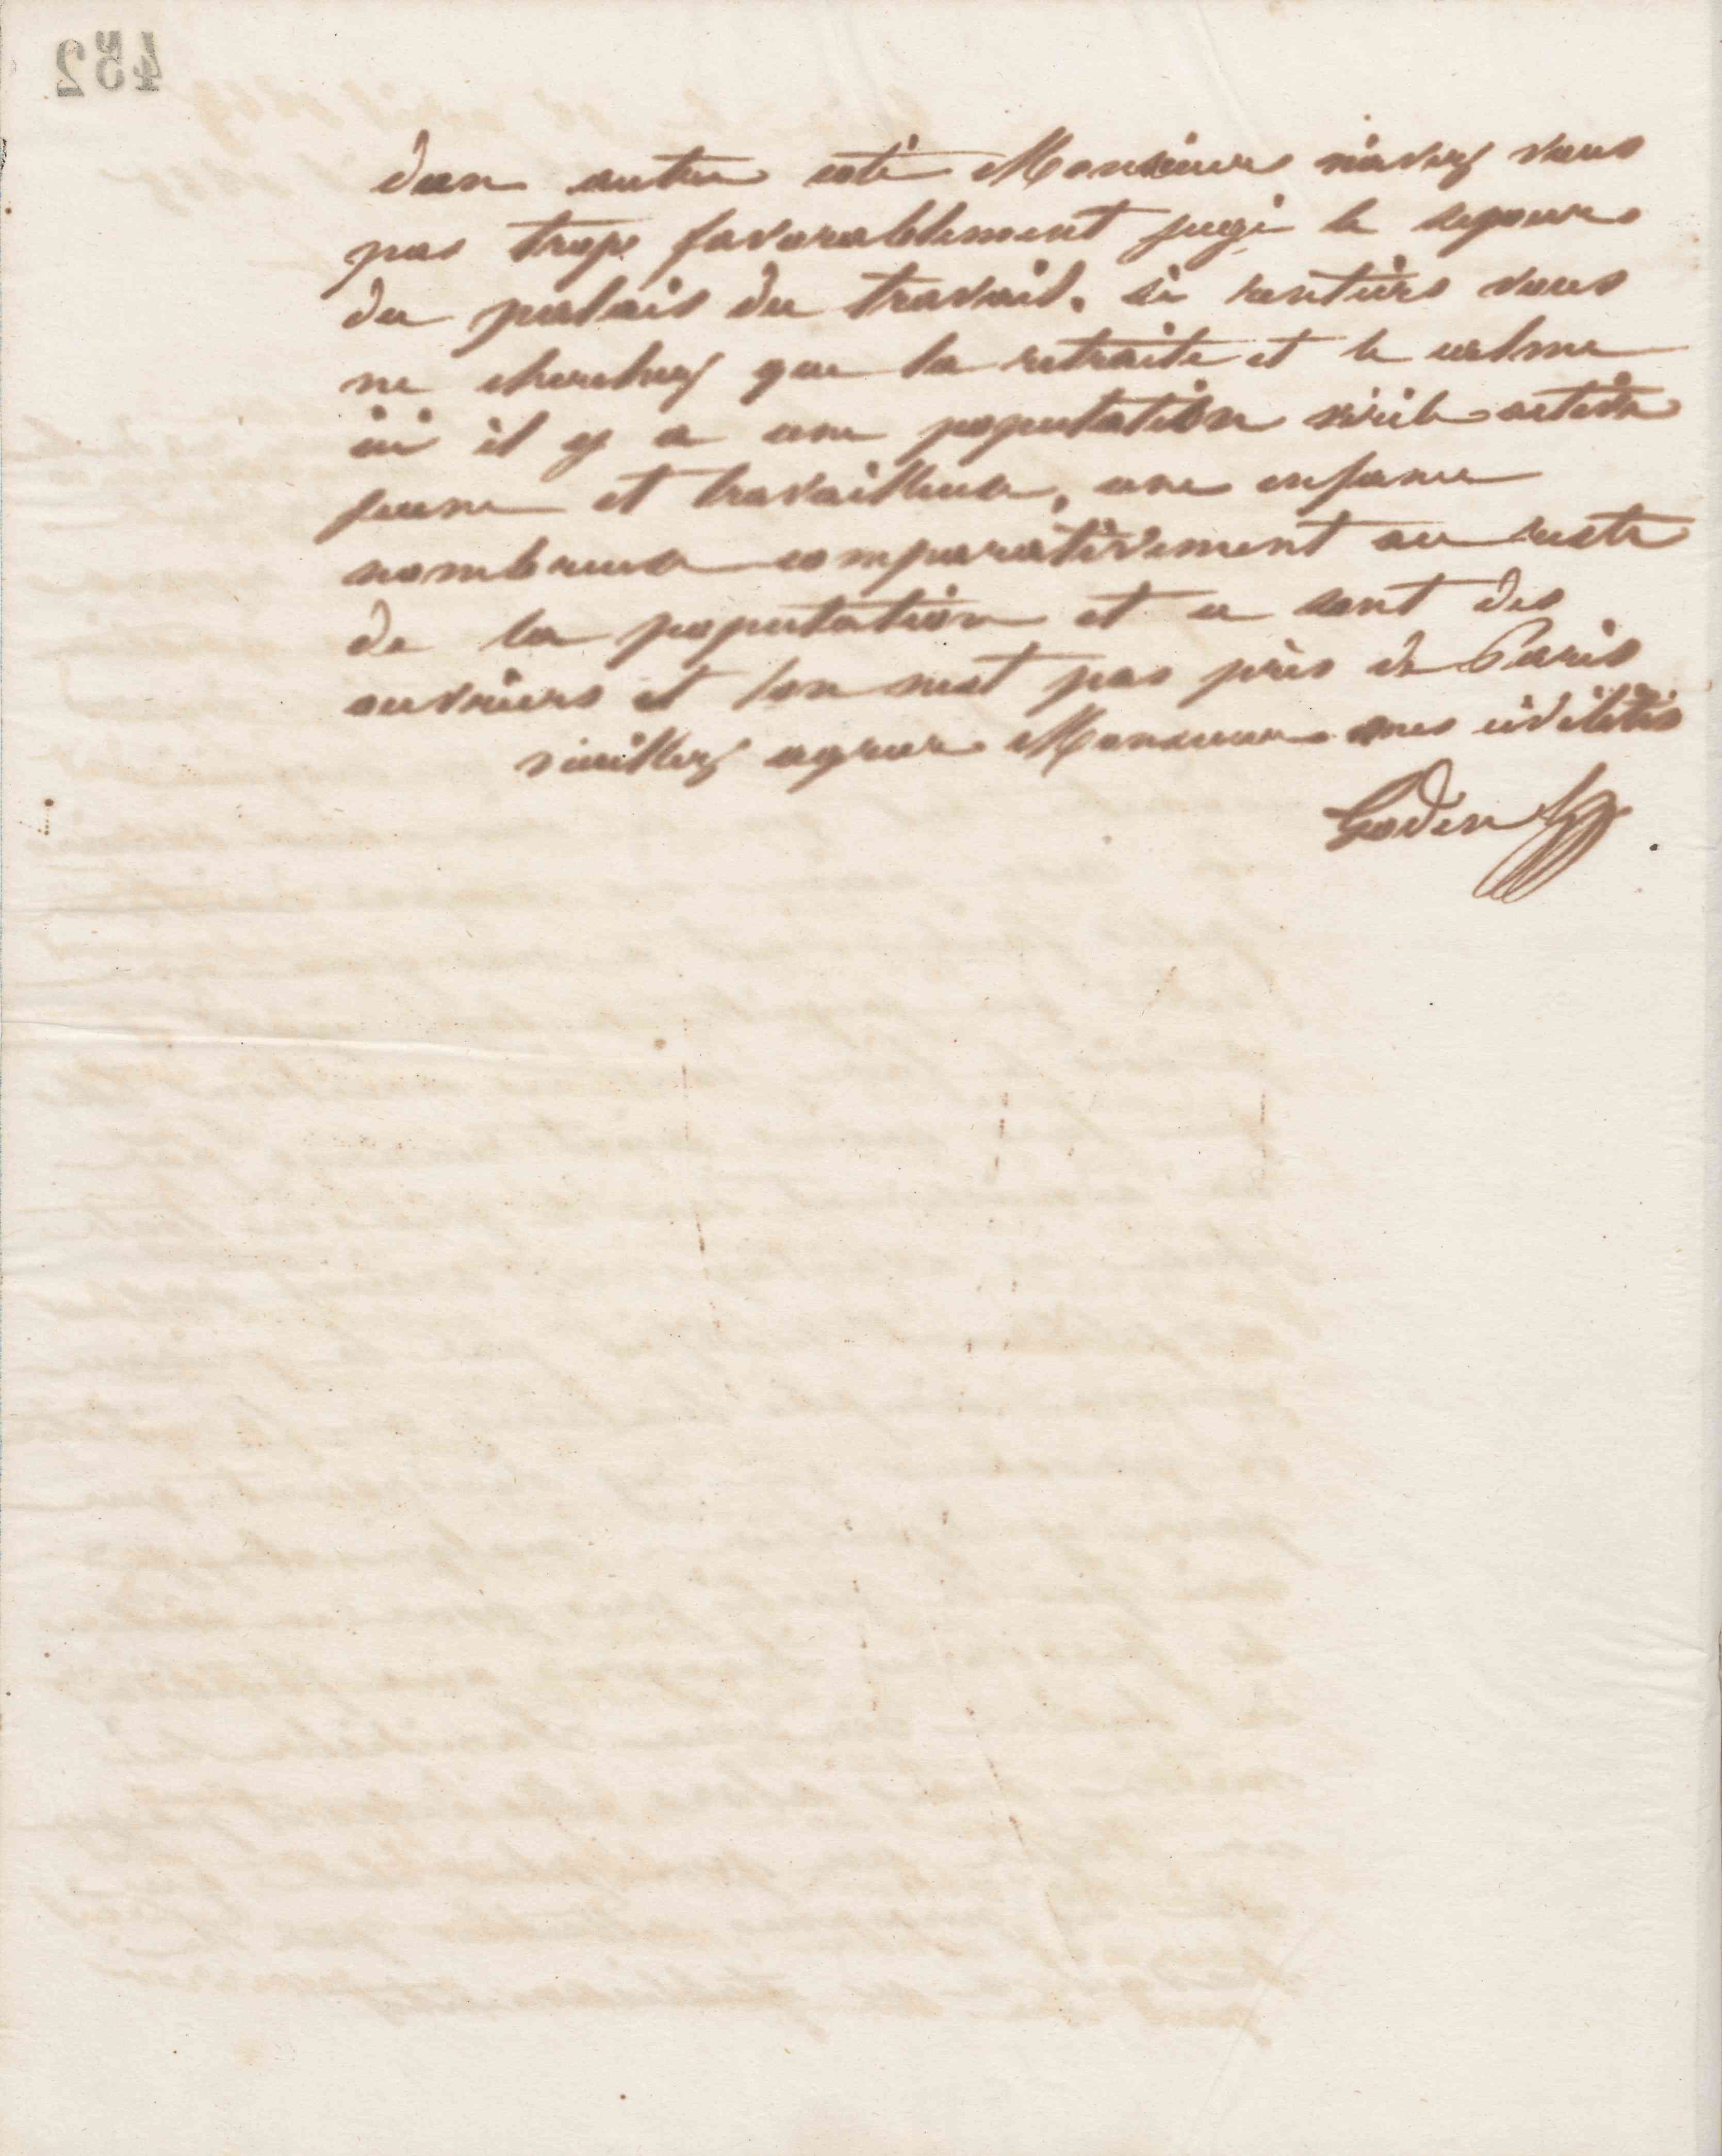 452
dun autre coté Monsieur navez vous
pas trop favorablement jugé le sejour
du palais du travail. si rentiers vous
ne cherchez que la retraite et le calme
ici il y a une population virile active
jeune et travailleuse, une enfance
nombreuse comparativement au reste
de la population et ce sont des
ouvriers et lon nest pas près de Paris
veuillez agreer Monsieur mes civilités
Godin